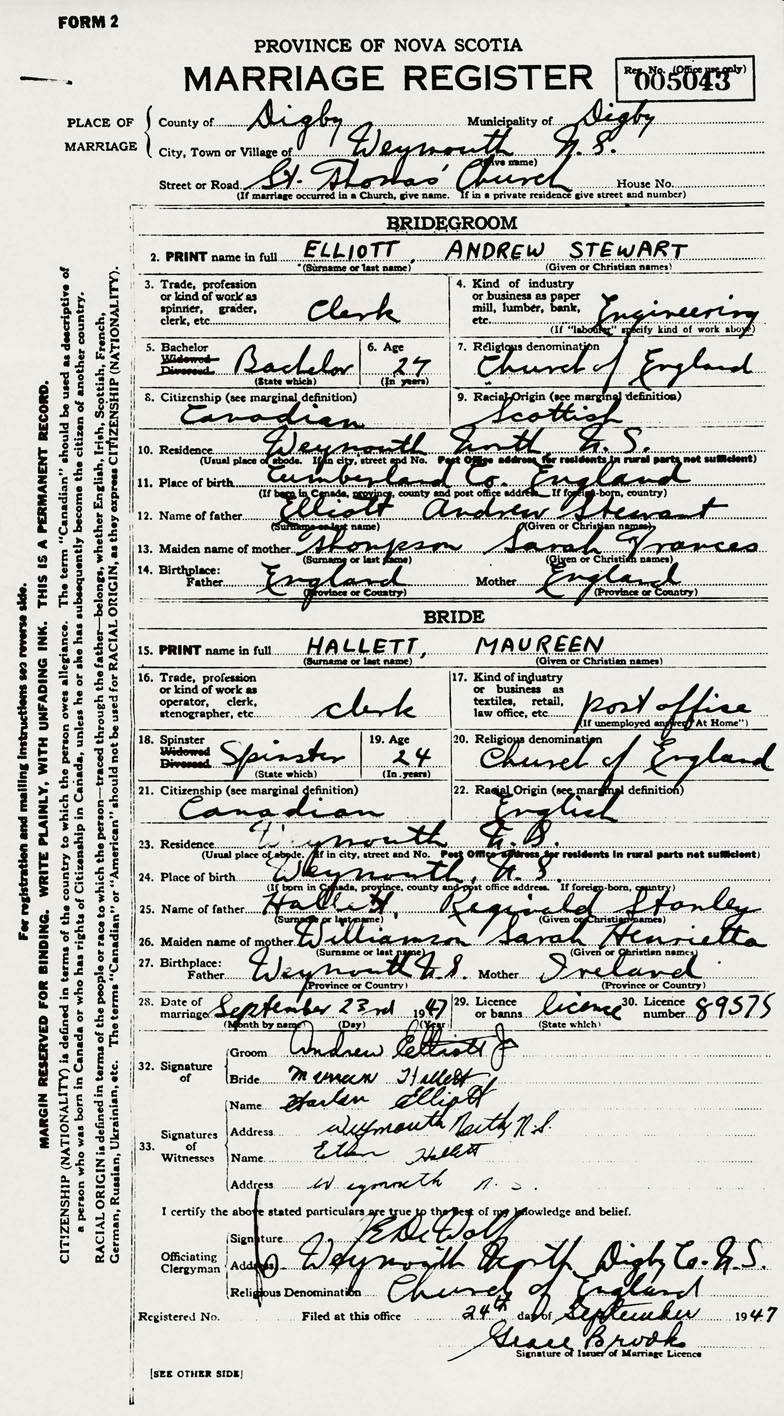 FORM 2
PROVINCE OF NOVA SCOTIA
MARRIAGE REGISTER
Reg. No. (Office use only)
005043
PLACE OF MARRIAGE
County of Digby Municipality of Digby
City, Town or Village of Weymouth N.S.
(Give name)
Street or Road St. Thomas' Church House No.
(If marriage occurred in a Church, give name. If in a private residence give street and number)
BRIDEGROOM
2. PRINT name in full ELLIOTT, ANDREW STEWART
(Surname or last name) (Given or Christian names)
3. Trade, profession or kind of work as spinner, grader, clerk, etc. Clerk
4. Kind of industry or business as paper mill, lumber, bank, etc. Engineering
(If "labourer" specify kind of work above)
5. Bachelor Widowed Divorced Bachelor
(State which)
6. Age 27
(In years)
7. Religious denomination Church of England
8. Citizenship (see marginal definition) Canadian
9. Racial Origin (see marginal definition) Scottish
10. Residence Weymouth North N.S.
(Usual place of abode. If in city, street and No. Post Office address for residents in rural parts not sufficient)
11. Place of birth Cumberland Co. England
(If born in Canada, province, county and post office address. If foreign-born, country)
12. Name of father Elliott Andrew Stewart
(Surname or last name) (Given or Christian names)
13. Maiden name of mother Thompson Sarah Frances
(Surname or last name) (Given or Christian names)
14. Birthplace: Father England Mother England
(Province or Country) (Province or Country)
BRIDE
15. PRINT name in full HALLETT, MAUREEN
(Surname or last name) (Given or Christian names)
16. Trade, profession or kind of work as operator, clerk, stenographer, etc. clerk
17. Kind of industry or business as textiles, retail, law office, etc. post office
(If unemployed answer "At Home")
18. Spinster Widowed Divorced Spinster
(State which)
19. Age 24
(In years)
20. Religious denomination Church of England
21. Citizenship (see marginal definition) Canadian
22. Racial Origin (see marginal definition) English
23. Residence Weymouth N.S.
(Usual place of abode. If in city, street and No. Post Office address for residents in rural parts not sufficient)
24. Place of birth Weymouth, N.S.
(If born in Canada, province, county and post office address. If foreign-born, country)
25. Name of father Hallett, Reginald Stanley
(Surname or last name) (Given or Christian names)
26. Maiden name of mother Williamson Sarah Henrietta
(Surname or last name) (Given or Christian names)
27. Birthplace: Father Weymouth N.S. Mother Ireland
(Province or Country) (Province or Country)
28. Date of marriage September 23rd 1947
(Month by name) (Day) (Year)
29. Licence or banns licence
(State which)
30. Licence number 89575
32. Signature of
Groom Andrew Elliott Jr
Bride Maureen Hallett
33. Signatures of Witnesses
Name Elliott
Address Weymouth North N.S.
Name Hallett
Address Weymouth N.S.
I certify the above stated particulars are true to the best of my knowledge and belief.
Officiating Clergyman
Signature DeWolf
Address Weymouth North Digby Co. N.S.
Religious Denomination Church of England
Registered No. Filed at this office 24th day of September 1947
Grace Brooks
Signature of Issuer of Marriage Licence
[SEE OTHER SIDE]
For registration and mailing instructions see reverse side.
MARGIN RESERVED FOR BINDING. WRITE PLAINLY, WITH UNFADING INK. THIS IS A PERMANENT RECORD.
CITIZENSHIP (NATIONALITY) is defined in terms of the country to which the person owes allegiance. The term "Canadian" should be used as descriptive of
a person who was born in Canada or who has rights of Citizenship in Canada, unless he or she has subsequently become the citizen of another country.
RACIAL ORIGIN is defined in terms of the people or race to which the person—traced through the father—belongs, whether English, Irish, Scottish, French,
German, Russian, Ukrainian, etc. The terms "Canadian" or "American" should not be used for RACIAL ORIGIN, as they express CITIZENSHIP (NATIONALITY).